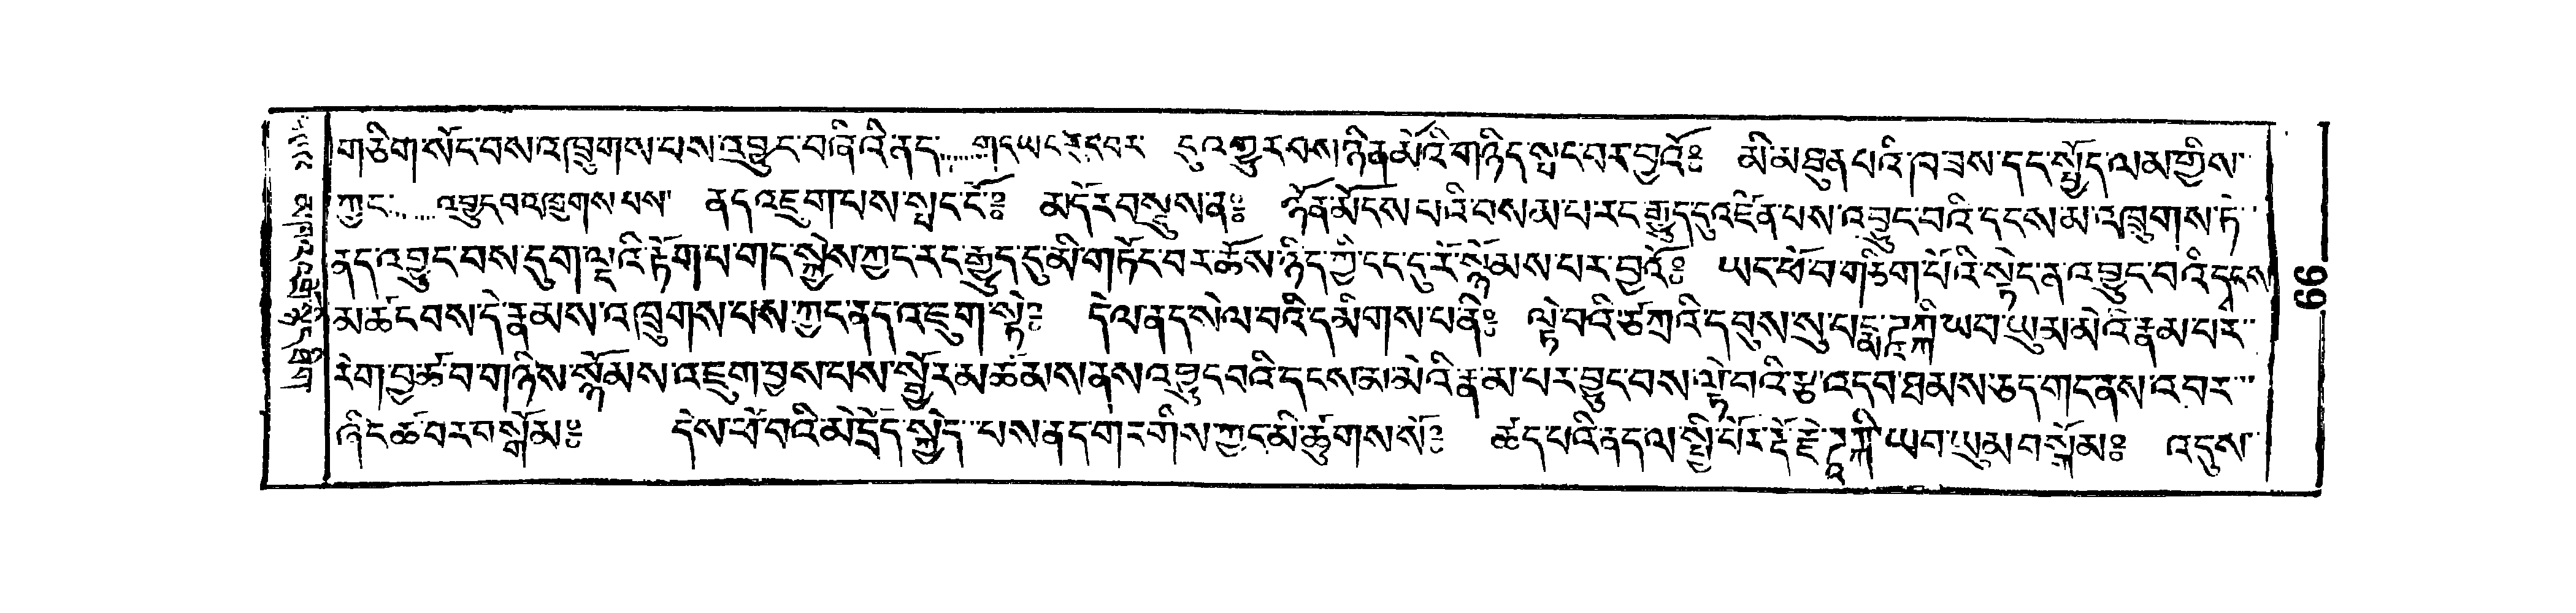 གཅིག་སོང་བས་འཁྲུགས་པས་འབྱུང་བཞི་འི་ནད་་་་་་གང་ཡང་རུང་བར་ དུ་འགྱུར་བས། ཉིན་མོའི་གཉིད་སྤང་བར་བྱའོ༔ མི་མཐུན་པའི་ཁ་ཟས་དང་སྤྱོད་ལམ་གྱིས་
ཀྱང་་་་་་འབྱུང་བ་འཁྲུགས་པས་ ནད་འཇུག་པས་སྤང་ངོ༔ མདོར་བསྡུས་ན༔ ཉོན་མོངས་པའི་བསམ་པ་རང་རྒྱུད་དུ་འཛིན་པས་འབྱུང་བའི་དངས་མ་འཁྲུགས་ཏེ་
ནད་འབྱུང་བས་དུག་ལྔའི་རྟོག་པ་གང་སྐྱེས་ཀྱང་རང་རྒྱུད་དུ་མི་གཏོང་བར་ཆོས་ཉིད་ཀྱི་ངང་དུ་རོ་སྙོམས་པར་བྱའོ༔ ཡང་ཕོ་བ་གཅིག་པོའི་སྟེང་ན་འབྱུང་བའི་དྭངས
མ་ཚང་བས་དེ་རྣམས་འཁྲུགས་པས་ཀྱང་ནད་འཇུག་སྟེ༔ དེ་ལ་ནད་སེལ་བའི་དམིགས་པ་ནི༔ ལྟེ་བའི་ཙཀྲའི་དབུས་སུ་པདྨ་ཌཱཀྐི་ཡབ་ཡུམ་མེའི་རྣམ་པར་
རེག་བྱ་ཚ་བ་གཉིས་སྙོམས་འཇུག་བྱས་པས་སྦྱོར་མཚམས་ནས་འཕྲུང་བའི་དངས་མ་མེའི་རྣམ་པར་བྱུང་བས་ལྟེ་བའི་རྩ་འདབ་ཐམས་ཅད་གང་ནས་འབར་
ཞིང་ཚ་བར་བསྒོམ༔ དེས་ཕོ་བའི་མེ་དྲོད་སྐྱེད་པས་ནད་གང་གིས་ཀྱང་མི་ཚུགས་སོ༔ ཚད་པའི་ནད་ལ་སྤྱི་བོར་རྡོ་རྗེ་ཌཱཀྐི་ཡབ་ཡུམ་བསྒོམ༔ འདུས་